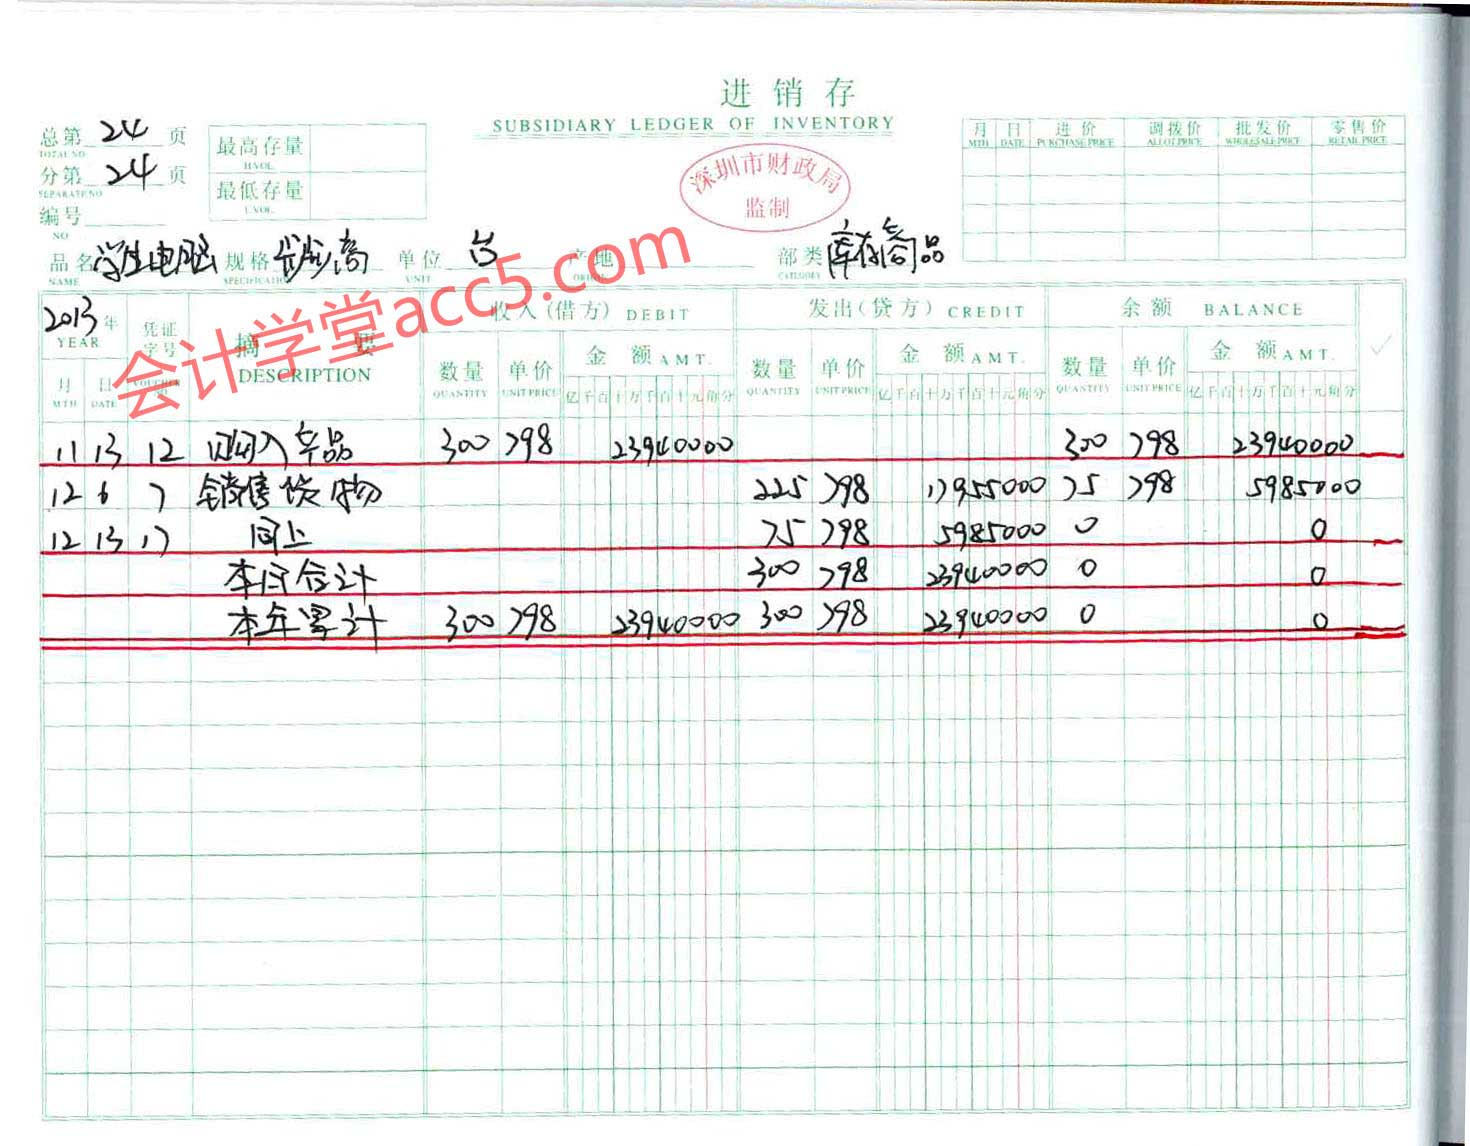 进销存
SUBSIDIARY LEDGER OF INVENTORY
总第 24 页
TOTAL NO
分第 24 页
SEPARATE NO
编号
NO
最高存量
H.VOL.
最低存量
L.VOL.
深圳市财政局
监制
月 日 进价 调拨价 批发价 零售价
MTH DATE PURCHASE PRICE ALLOT PRICE WHOLESALE PRICE RETAIL PRICE
品名 学生电脑 规格 单位 台 产地 部类 库存商品
NAME SPECIFICATION UNIT ORIGIN CATEGORY
会计学堂acc5.com
2013年 凭证字号 摘要 收入(借方) DEBIT 发出(贷方) CREDIT 余额 BALANCE
YEAR VOUCHER DESCRIPTION
月 日 数量 单价 金额 AMT. 数量 单价 金额 AMT. 数量 单价 金额 AMT.
MTH DATE QUANTITY UNIT PRICE 亿千百十万千百十元角分 QUANTITY UNIT PRICE 亿千百十万千百十元角分 QUANTITY UNIT PRICE 亿千百十万千百十元角分
11 13 12 购入产品 300 798 23940000 300 798 23940000
12 6 7 销售货物 225 798 17955000 75 798 5985000
12 13 17 同上 75 798 5985000 0 0
本月合计 300 798 23940000 0 0
本年累计 300 798 23940000 300 798 23940000 0 0